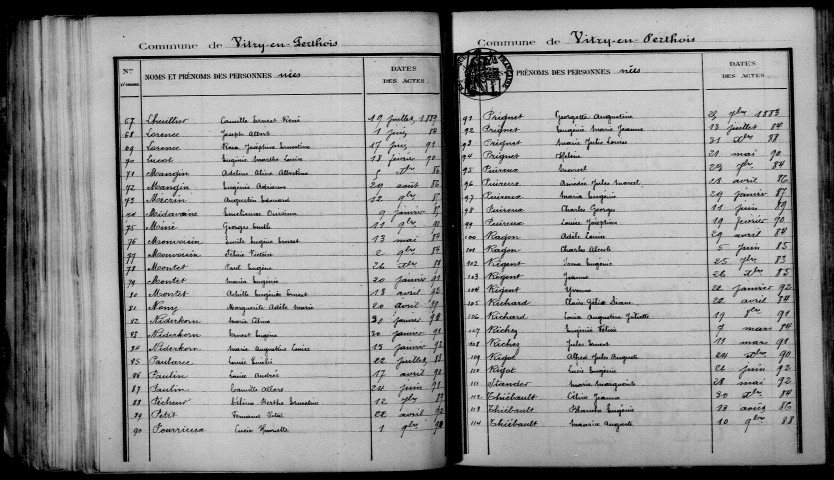 Commune de Vitry-en-Perthois
Nos D'ORDRE NOMS ET PRÉNOMS DES PERSONNES nées DATES DES ACTES
67 Lhuillier Camille Ernest René 19 juillet 1889
68 Lorence Joseph Albert 1 juin 84
69 Lorence Rosa Joséphine Ernestine 17 juin 91
70 Lucot Eugénie Marthe Louise 13 février 90
71 Mangin Adeline Aline Albertine 5 Xbre 86
72 Mangin Eugénie Adrienne 29 août 86
73 Mécrin Augustin Edouard 12 9bre 87
74 Médavane 9 janvier
75 Moiné Georges Emile 11 9bre
76 Monvoisin Emile Eugène Ernest 13 mai 84
77 Monvoisin Victoire 2 9bre 84
78 Montet Paul Eugène 26 Xbre
79 Montet Maria Eugénie 20 janvier 91
80 Montet Achille Eugène Ernest 13 avril 92
81 Mony Marguerite Adèle Marie 20 avril
82 Niderkorn Marie Aline 30 janvier
83 Niderkorn Ernest Eugène 30 janvier 91
84 Niderkorn Marie Augustine Louise 13 janvier
85 22 juillet
86 Paulin Louise Andrée 17 avril
87 Paulin Camille Albert 24 juin
88 Pécheur Berthe Ernestine 12 9bre
89 Petit 22 avril
90 Pourrieux Lucie Henriette 1 9bre 90
Commune de Vitry-en-Perthois
PRÉNOMS DES PERSONNES nées DATES DES ACTES
91 Prignet Georgette Augustine 1883
92 Prignet Eugénie Marie Jeanne 13 juillet 84
93 Prignet Marie Julie Louise 31 Xbre 88
94 Prignet Hélène 21 mai 90
95 Puireux Marcel 84
96 Puireux Amédée Jules Marcel 21 avril 86
97 Puireux Maria Eugénie 29 janvier 87
98 Puireux Charles Georges 11 juin 89
99 Puireux Louise Joséphine 19 février 90
100 Ragon Adèle Louise 29 avril 84
101 Ragon Charles Alcide 5 juin 85
102 Régent Irma Eugénie 25 83
103 Régent Jeanne 26 Xbre 85
104 Régent Yvonne 22 janvier 92
105 Richard Claire 22 avril 84
106 Richard Louise Augustine Juliette 19 8bre 91
107 Richez Eugénie Félicie 7 mars 84
108 Richez Jules Ernest 11 mars 91
109 Rigot Alfred Jules Auguste 24 Xbre 90
110 Rigot Lucie Eugénie 26 juin 92
111 Stander Maria Marguerite 28 mai 92
112 Thiébault Céline Jeanne 30 Xbre 84
113 Thiébault Eugénie 13 août 86
114 Thiébault Maurice Auguste 10 9bre 88